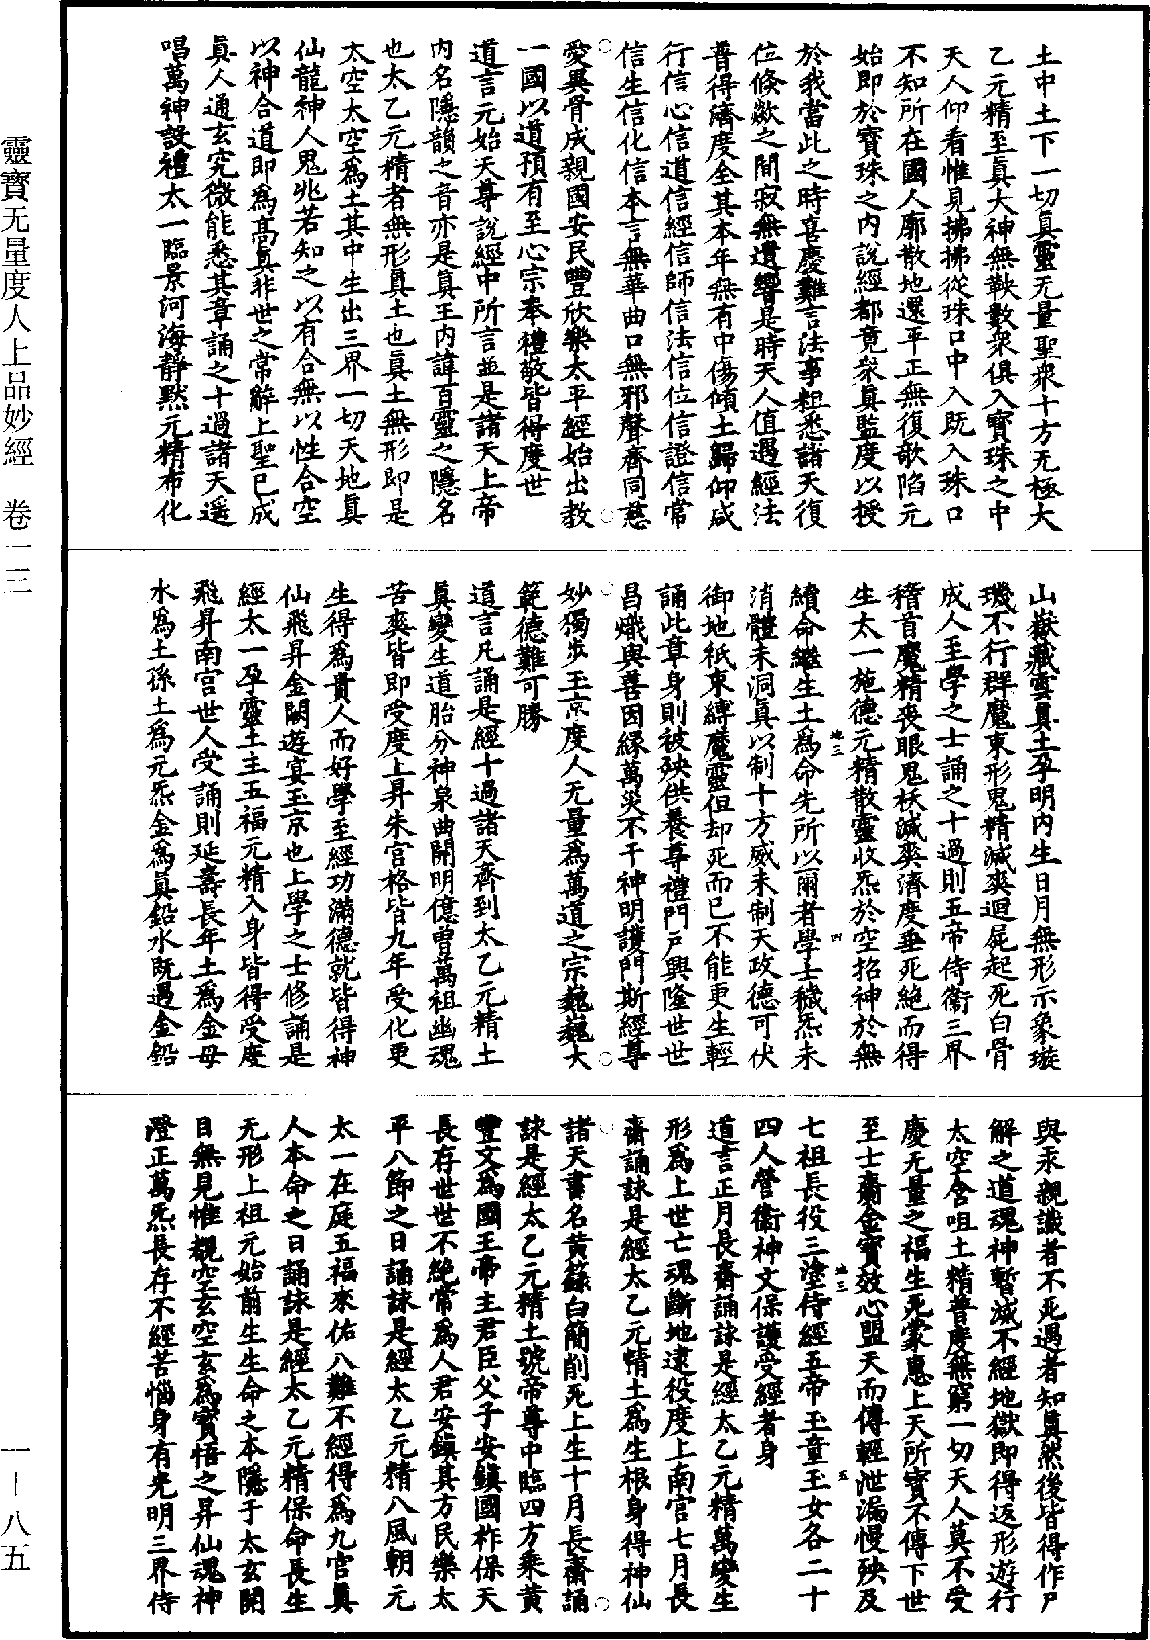 土中土下一切真靈无量聖衆十方无極大
乙元精至真大神無鞅數衆俱入寶珠之中
天人仰看惟見拂拂從珠口中入既入珠口
不知所在國人廓散地還平正無復欹陷元
始即於寶珠之內說經都竟衆真監度以授
於我當此之時喜慶難言法事粗悉諸天復
位倏歘之間寂無遺響是時天人值遇經法
普得濟度全其本年無有中傷傾土歸仰咸
行信心信道信經信師信法信位信證信常
信生信化信本言無華曲口無邪聲齊同慈
愛異骨成親國安民豐欣樂太平經始出教
一國以道預有至心宗奉禮敬皆得度世
道言元始天尊說經中所言並是諸天上帝
內名隱韻之音亦是真王內諱百靈之隱名
也太乙元精者無形真土也真土無形即是
太空太空為土其中生出三界一切天地真
仙龍神人鬼兆若知之以有合無以性合空
以神合道即為高真非世之常辭上聖已成
真人通玄究微能悉其章誦之十過諸天遥
唱萬神設禮太一臨景河海靜默元精布化
山嶽藏雲真土孕明內生日月無形示象璇
璣不行群魔束形鬼精滅爽迴屍起死白骨
成人至學之士誦之十過則五帝侍衛三界
稽首魔精喪眼鬼袄滅爽濟度垂死絕而得
生太一施德元精散靈收炁於空招神於無
續命繼生土為命先所以爾者學士穢炁未
消體未洞真以制十方威未制天政德可伏
御地祇束縛魔靈但却死而已不能更生輕
誦此章身則被殃供養尊禮門戶興隆世世
昌熾與善因緣萬災不干神明護門斯經尊
妙獨步玉京度人无量為萬道之宗巍巍大
範德難可勝
道言凡誦是經十過諸天齊到太乙元精土
真變生道胎分神泉曲開明億曾萬祖幽魂
苦爽皆即受度上昇朱宮格皆九年受化更
生得為貴人而好學至經功滿德就皆得神
仙飛昇金闕遊宴玉京也上學之士修誦是
經太一孕靈土主五福元精入身皆得受度
飛昇南宮世人受誦則延壽長年土為金母
水為土孫土為元炁金為真鉛水既遇金鉛
與汞親識者不死遇者知真然後皆得作尸
解之道魂神暫滅不經地獄即得返形遊行
太空含咀土精普度無窮一切天人莫不受
慶无量之福生死蒙惠上天所寶不傳下世
至士齎金寶效心盟天而傳輕泄漏慢殃及
七祖長役三塗侍經五帝玉童玉女各二十
四人營衛神文保護受經者身
道言正月長齋誦詠是經太乙元精萬變生
形為上世亡魂斷地逮役度上南宮七月長
齋誦詠是經太乙元精土為生根身得神仙
諸天書名黃籙白簡削死上生十月長齋誦
詠是經太乙元精土號帝尊中臨四方乘黃
豐文為國王帝主君臣父子安鎮國祚保天
長存世世不絕常為人君安鎮其方民樂太
平八節之日誦詠是經太乙元精八風朝元
太一在庭五福來佑八難不經得為九宮真
人本命之日誦詠是經太乙元精保命長生
无形上祖元始前生生命之本隱于太玄開
目無見惟覩空玄空玄為寶悟之昇仙魂神
澄正萬炁長存不經苦惱身有光明三界侍
地三
四
地三
五
靈寶无量度人上品妙經 卷一三
一—八五